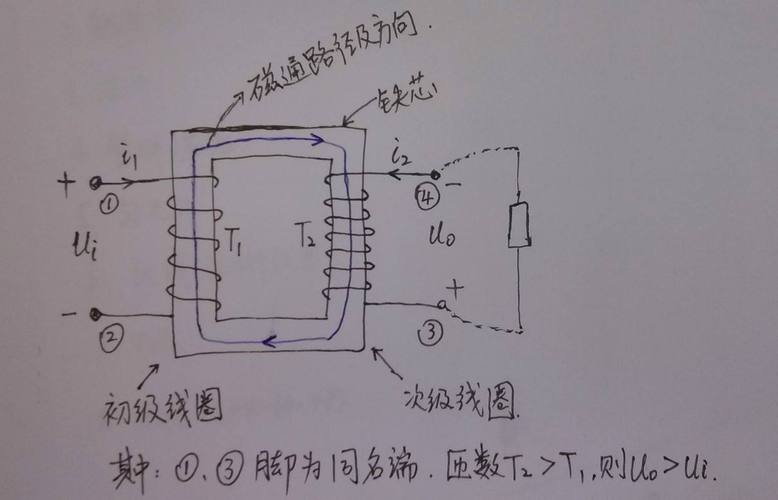 磁通路径及方向.
铁芯
i₁
i₂
+
①
④
-
Ui
T₁
T₂
Uo
-
②
+
③
初级线圈
次级线圈.
其中: ①、③脚为同名端. 匝数T₂>T₁,则Uo>Ui.